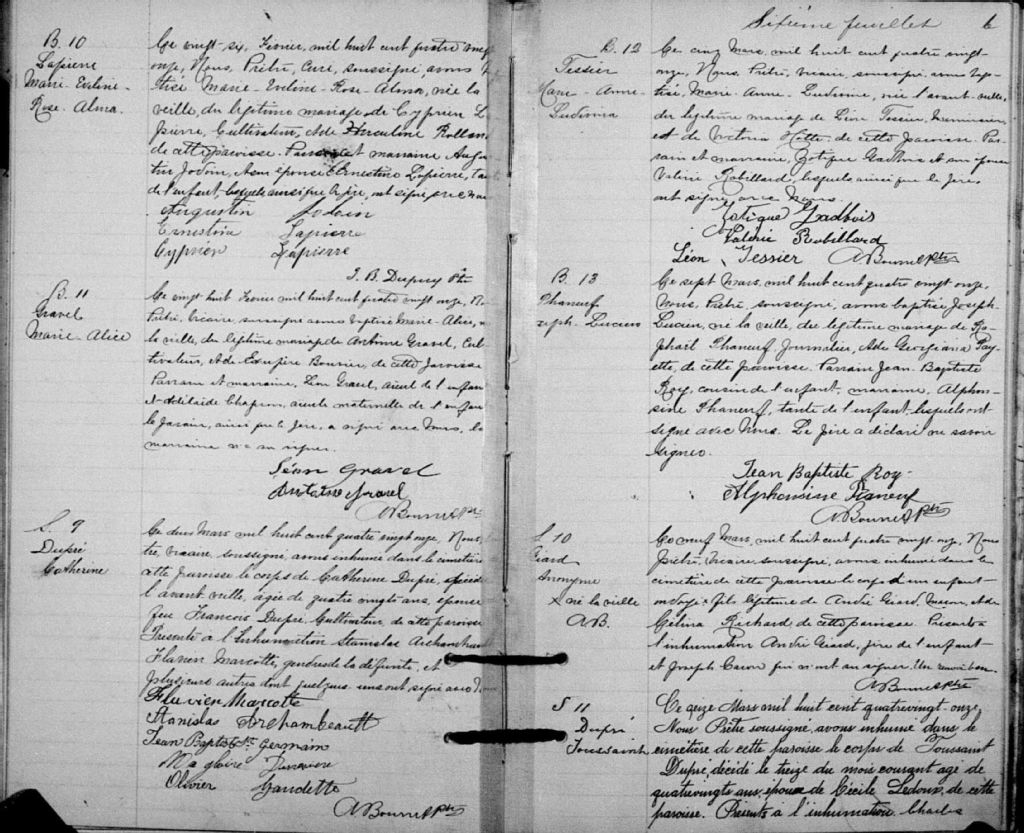 B. 10
Lapierre
Marie-Evéline-
Rose-Alma.
Ce vingt-six, Fevrier, mil huit cent quatre vingt
onze, Nous, Prêtre, Curé, soussigné avons
Marie-Evéline-Rose-Alma, née la
veille, du légitime mariage de Cyprien
pierre, Cultivateur, et de Herculine
de cette paroisse. Parrain et marraine
Jodoin, et son épouse Ernestine Lapierre,
de l'enfant, lesquels ainsi que le père, ont signé avec nous
Augustin Jodoin
Ernestine Lapierre
Cyprien Lapierre
J. B. Dupuy Ptre
B. 11
Gravel
Marie-Alice
Ce vingt huit Fevrier mil huit cent quatre vingt onze,
Prêtre, Vicaire, soussigné avons baptisé Marie-Alice,
la veille, du légitime mariage de Antoine Gravel,
tivateur, et de Exupire de cette paroisse
Parrain et marraine, Léon Gravel, aieul de l'enfant
et Adélaïde Chapron, aieule maternelle de l'enfant
le parrain, ainsi que le père, a signé avec nous, la
marraine n'a su signer.
Léon Gravel
Antoine Gravel
ABourret Ptre
S. 9
Dupré
Catherine
Ce deux Mars mil huit cent quatre vingt onze, Nous,
tre, vicaire, soussigné, avons inhumé dans le cimetière
cette paroisse le corps de Catherine Dupré,
l'avant veille, âgée de quatre vingts ans, épouse
feu François Dupré, Cultivateur, de cette paroisse
Présents à l'Inhumation Stanislas
Flavien Marcotte, gendres de la défunte, et
plusieurs autres dont quelques uns ont signé avec
Fluvien Marcotte
Stanislas Archambeault
Jean Baptiste Germain
Magloire
Olivier Gaudette
ABourret Ptre
Sixième feuillet 6
B. 12
Tessier
Marie-Anne-
Ludivina
Ce cinq Mars, mil huit cent quatre vingt
onze, Nous, Prêtre, Vicaire, soussigné, avons bap-
tisé, Marie-Anne-Ludivina, née l'avant-veille,
du légitime mariage de Léon Tessier,
et de Victoria de cette paroisse. Par-
rain et marraine, Zotique Gadbois et son épouse
Valérie Robillard, lesquels ainsi que le père
ont signé avec Nous.
Zotique Gadbois
Valérie Robillard
Léon Tessier ABourret Ptre
B. 13
Phaneuf
Joseph-Lucien
Ce sept Mars, mil huit cent quatre vingt onze,
Nous, Prêtre, soussigné, avons baptisé Joseph-
Lucien, né la veille, du légitime mariage de Ra-
phaël Phaneuf Journalier, et de Georgiana Pay-
ette, de cette paroisse. Parrain Jean-Baptiste
Roy, cousin de l'enfant, marraine, Alphon-
sine Phaneuf, tante de l'enfant, lesquels ont
signé avec Nous. Le père a déclaré ne savoir
signer.
Jean Baptiste Roy-
Alphonsine Phaneuf
ABourret Ptre
S 10
Giard
Anonyme
x né la veille
AB.
Ce neuf Mars, mil huit cent quatre vingt onze, Nous
Prêtre, Vicaire soussigné, avons inhumé dans le
cimetière de cette paroisse le corps d'un enfant
ondoyé x fils légitime de André Giard, Maçon, et de
Célina Richard de cette paroisse. Présents à
l'inhumation André Giard, père de l'enfant
et Joseph Caron qui n'ont su signer. Un renvoi bon.
ABourret Ptre
S 11
Dupré
Toussaint
Ce seize Mars mil huit cent quatrevingt onze
Nous Prêtre soussigné, avons inhumé dans le
cimetière de cette paroisse le corps de Toussaint
Dupré, décédé le treize du mois courant agé de
quatrevingts ans, époux de Cécile Ledoux, de cette
paroisse. Présents à l'inhumation Charles